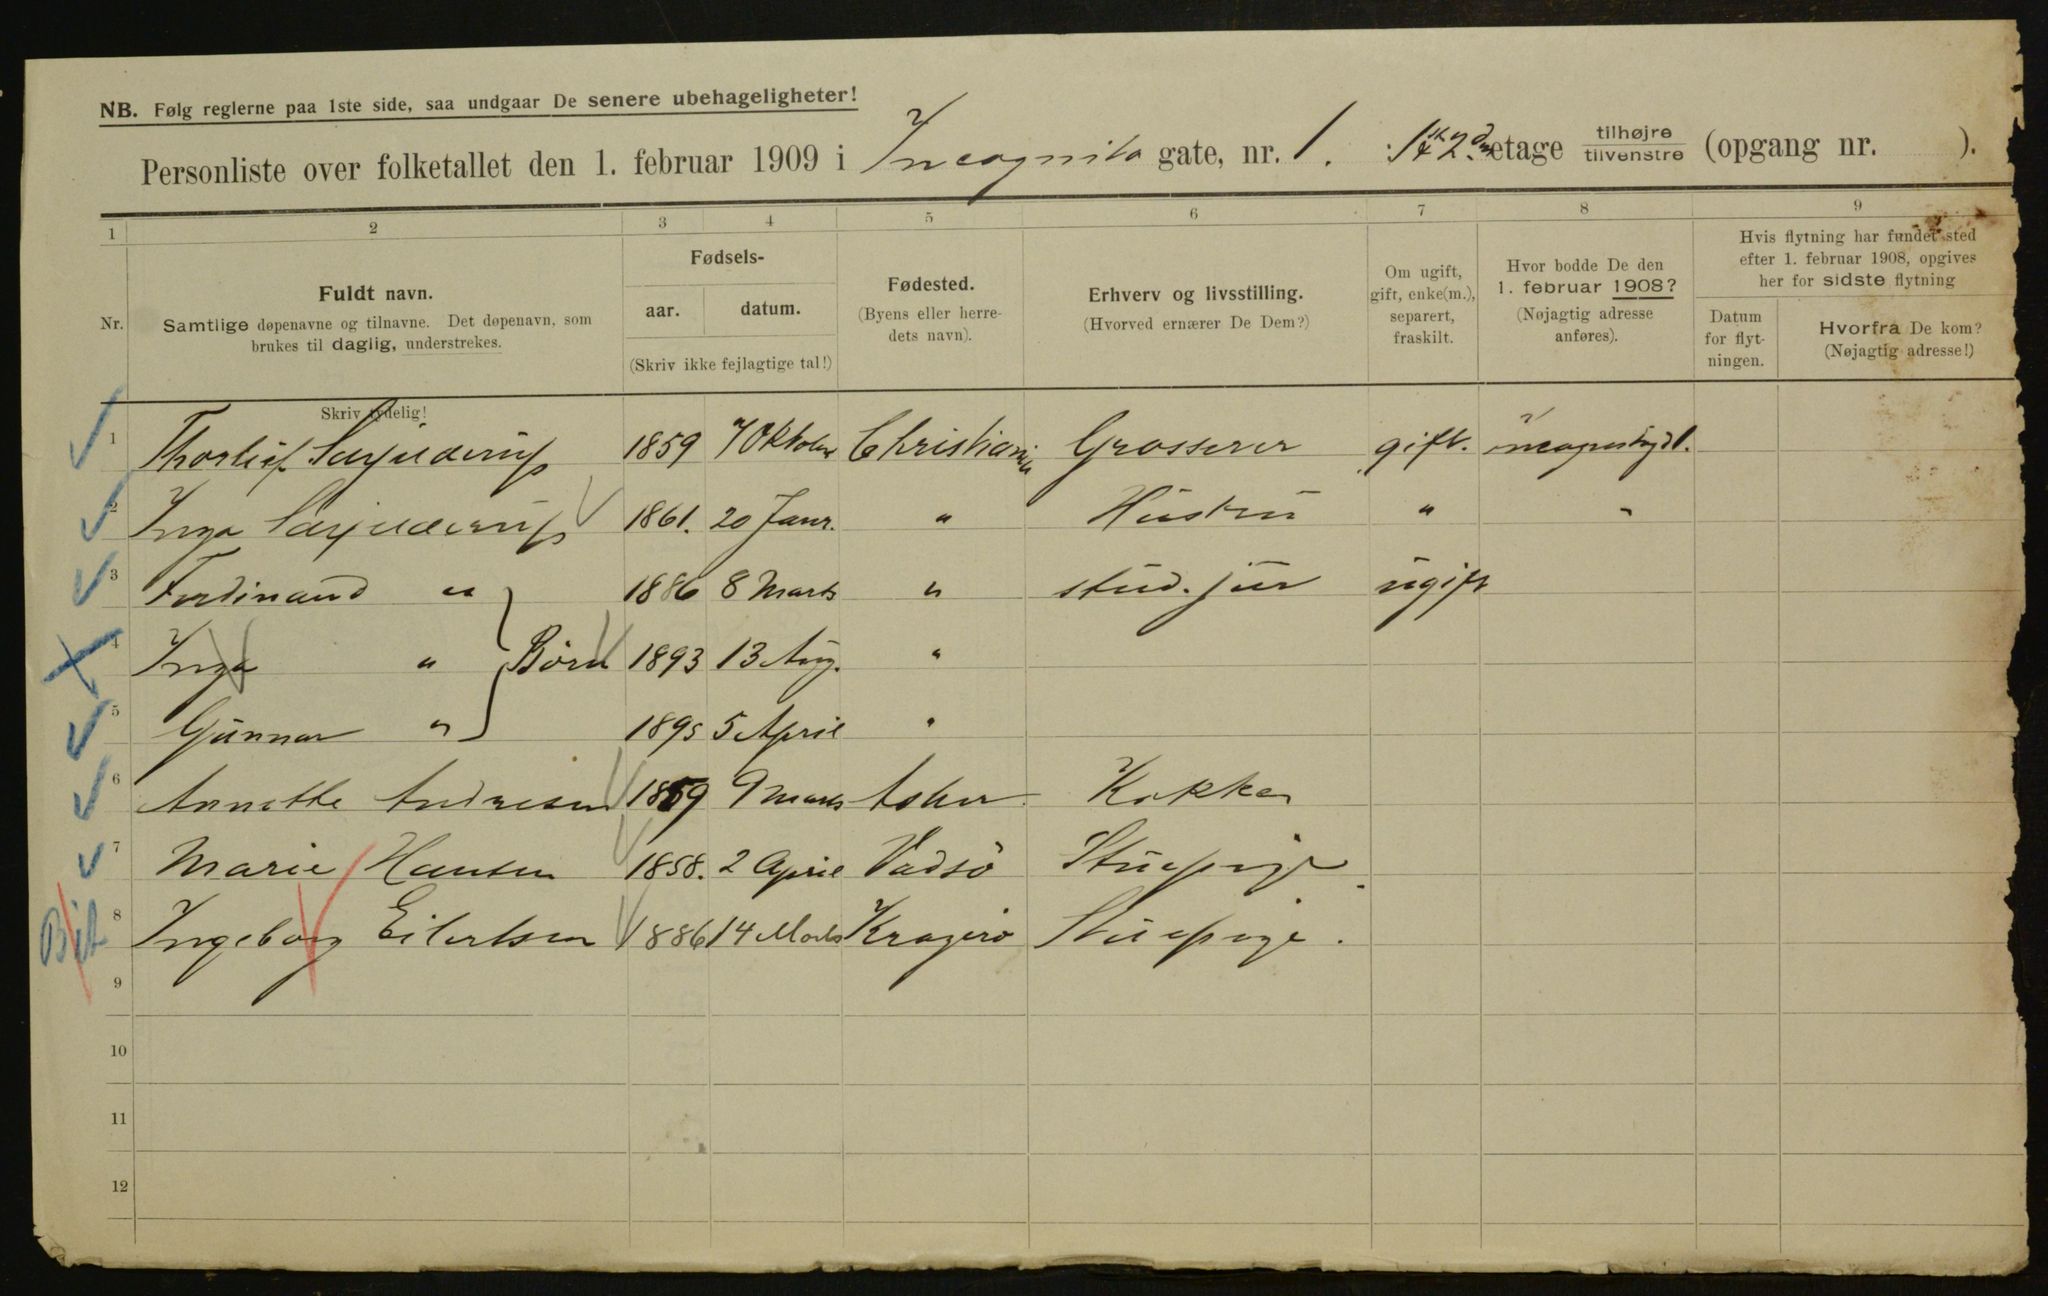 NB. Følg reglerne paa 1ste side, saa undgaar De senere ubehageligheter!
Personliste over folketallet den 1. februar 1909 i Incognito gate, nr. 1. etage tilhøjre tilvenstre (opgang nr. ).
1 2 3 4 5 6 7 8 9
Nr.
Fuldt navn.
Samtlige døpenavne og tilnavne. Det døpenavn, som
brukes til daglig, understrekes.
Skriv tydelig!
Fødsels-
aar. datum.
(Skriv ikke fejlagtige tal!)
Fødested.
(Byens eller herre-
dets navn).
Erhverv og livsstilling.
(Hvorved ernærer De Dem?)
Om ugift,
gift, enke(m.),
separert,
fraskilt.
Hvor bodde De den
1. februar 1908?
(Nøjagtig adresse
anføres).
Hvis flytning har fundet sted
efter 1. februar 1908, opgives
her for sidste flytning
Datum
for flyt-
ningen.
Hvorfra De kom?
(Nøjagtig adresse!)
1 Thorleif 1859 7 Oktober Christiania Grosserer gift.
2 Inga 1861. 20 Janr. " Hustru " "
3 Ferdinand " 1886 8 Marts " stud. jur ugift
4 Inga " Børn 1893 13 Aug. "
5 Gunnar " 1895 5 April "
6 Annette Andresen 1859 9 Marts Asker Kokke
7 Marie Hansen 1858. 2 April Vadsö Stuepige.
8 Ingeborg Eilertsen 1886 14 Marts Kragerö Stuepige.
9
10
11
12